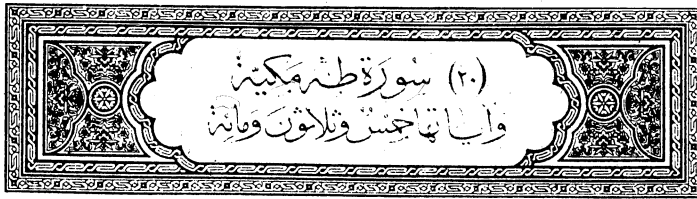 (٢٠) سُورَة طٰهٰ مَكِيَّة
وَآيَاتهَا خَمْسٌ وَثَلَاثُونَ وَمَائة